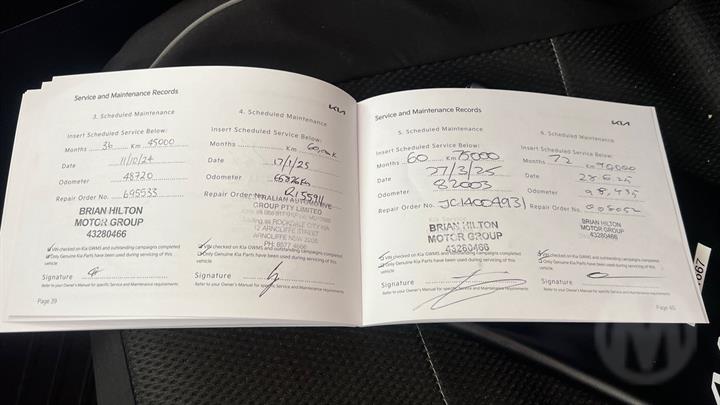 Service and Maintenance Records
3. Scheduled Maintenance
Insert Scheduled Service Below:
Months 36 Km 45000
Date 11/10/24
Odometer 48720
Repair Order No. 695533
BRIAN HILTON
MOTOR GROUP
43280466
VIN checked on Kia GWMS and outstanding campaigns completed
Only Genuine Kia Parts have been used during servicing of this
vehicle
Signature
Refer to your Owner's Manual for specific Service and Maintenance requirements
Page 39
KIA
4. Scheduled Maintenance
Insert Scheduled Service Below:
Months Km
Date 17/1/25
Odometer
Repair Order No. R15591
AUSTRALIAN AUTOMOTIVE
GROUP PTY LIMITED
ROCKDALE CITY KIA
12 ARNCLIFFE STREET
ARNCLIFFE NSW 2205
VIN checked on Kia GWMS and outstanding campaigns completed
Only Genuine Kia Parts have been used during servicing of this
vehicle
Signature
Refer to your Owner's Manual for specific Service and Maintenance requirements
Service and Maintenance Records
5. Scheduled Maintenance
Insert Scheduled Service Below:
Months 60 Km 75000
Date 27/3/25
Odometer 82003
Repair Order No. JC14004931
BRIAN HILTON
MOTOR GROUP
43280466
VIN checked on Kia GWMS and outstanding campaigns completed
Only Genuine Kia Parts have been used during servicing of this
vehicle
Signature
Refer to your Owner's Manual for specific Service and Maintenance requirements
KIA
6. Scheduled Maintenance
Insert Scheduled Service Below:
Months 72 Km 90000
Date 28.6.25
Odometer 98,435
Repair Order No.
BRIAN HILTON
MOTOR GROUP
43280466
VIN checked on Kia GWMS and outstanding campaigns completed
Only Genuine Kia Parts have been used during servicing of this
vehicle
Signature
Refer to your Owner's Manual for specific Service and Maintenance requirements
Page 40
M